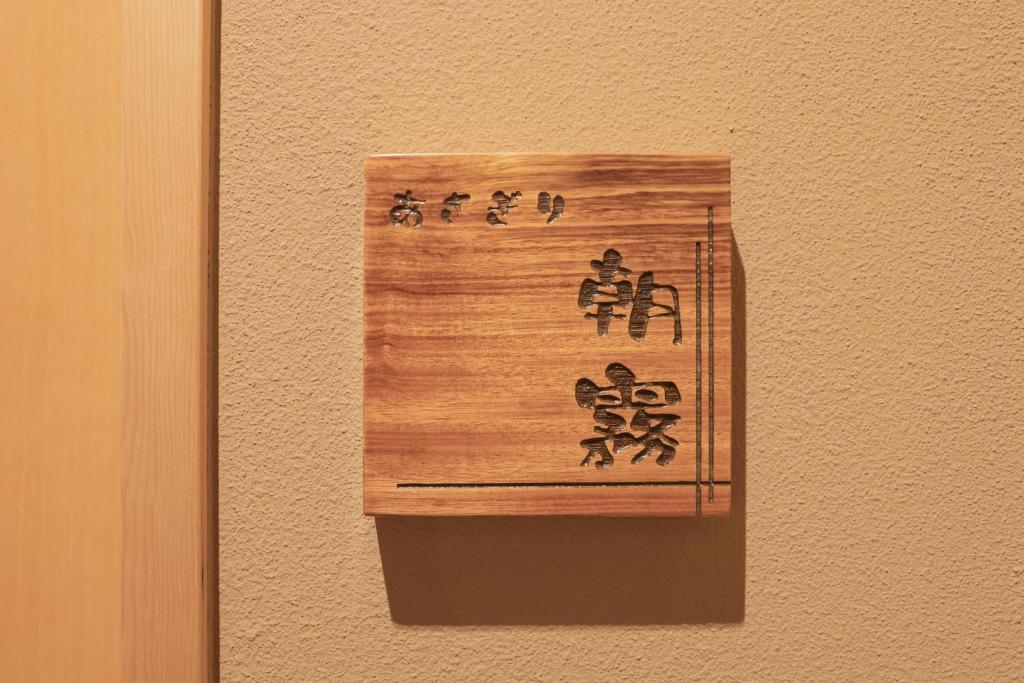 あさぎり
朝霧